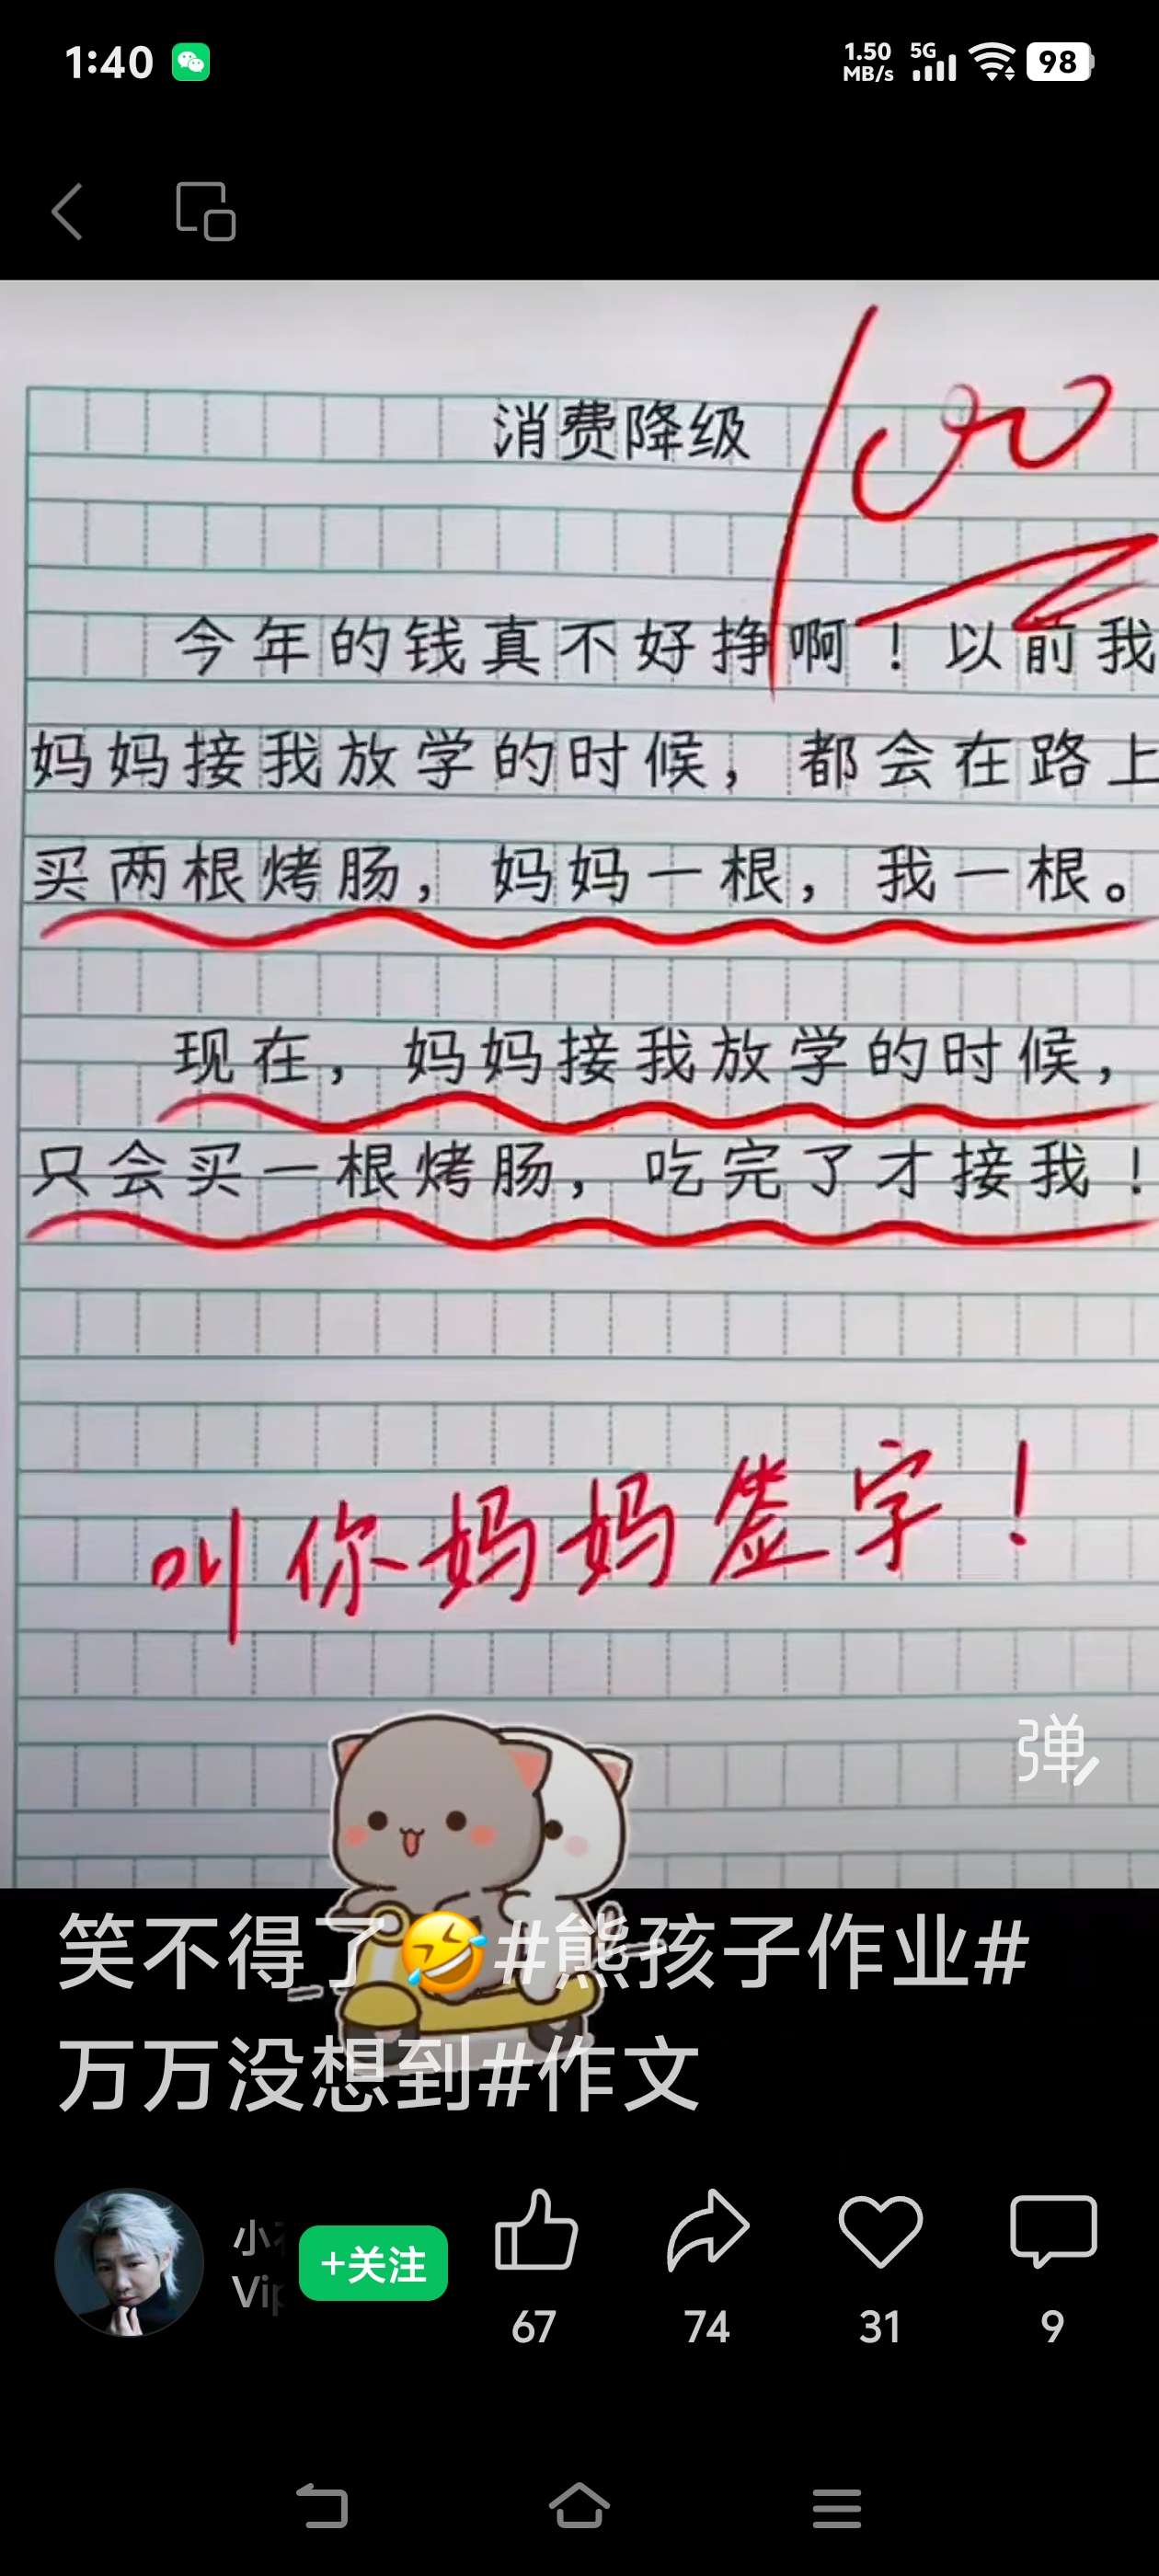 1:40
1.50 MB/s 5G 98
消费降级
100
今年的钱真不好挣啊！以前我
妈妈接我放学的时候，都会在路上
买两根烤肠，妈妈一根，我一根。
现在，妈妈接我放学的时候，
只会买一根烤肠，吃完了才接我！
叫你妈妈签字！
弹
笑不得了🤣#熊孩子作业#
万万没想到#作文
小
Vip
+关注
67 74 31 9